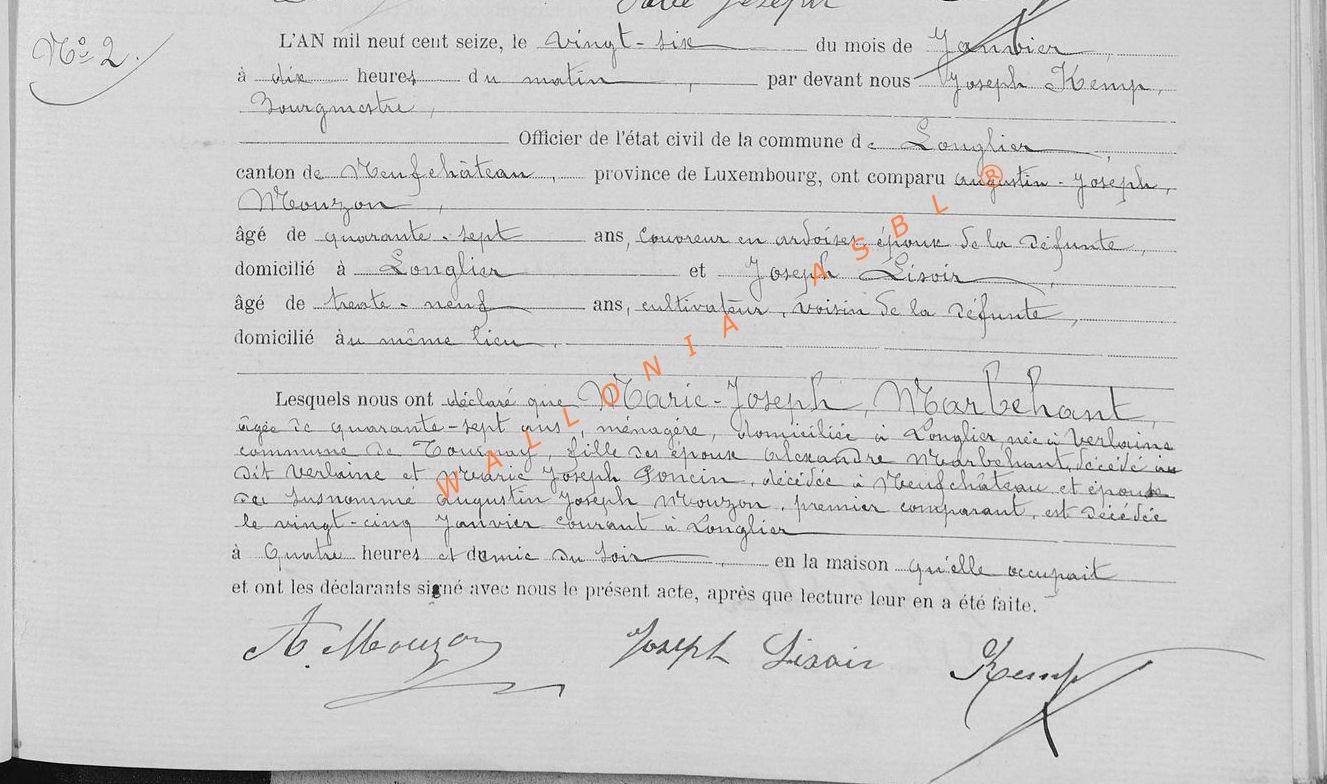 Nº 2.
L'AN mil neuf cent seize, le vingt-six du mois de Janvier,
à dix heures du matin, par devant nous Joseph Kemp,
Bourgmestre,
Officier de l'état civil de la commune de Longlier,
canton de Neufchâteau, province de Luxembourg, ont comparu Augustin-Joseph,
Mouzon,
âgé de quarante-sept ans, couvreur en ardoises, époux de la défunte,
domicilié à Longlier et Joseph Lisoir,
âgé de trente-neuf ans, cultivateur, voisin de la défunte,
domicilié au même lieu,
Lesquels nous ont déclaré que Marie-Joseph, Marbehant,
âgée de quarante-sept ans, ménagère, domiciliée à Longlier, née à Verlaine
commune de Tournay, fille des époux Alexandre Marbehant, décédé au
dit Verlaine et Marie Joseph Poncin, décédée à Neufchâteau, et épouse
du susnommé Augustin Joseph Mouzon, premier comparant, est décédée
le vingt-cinq Janvier courant à Longlier
à quatre heures et demie du soir, en la maison qu'elle occupait
et ont les déclarants signé avec nous le présent acte, après que lecture leur en a été faite.
A. Mouzon Joseph Lisoir Kemp
WALLONIA ASBL ®